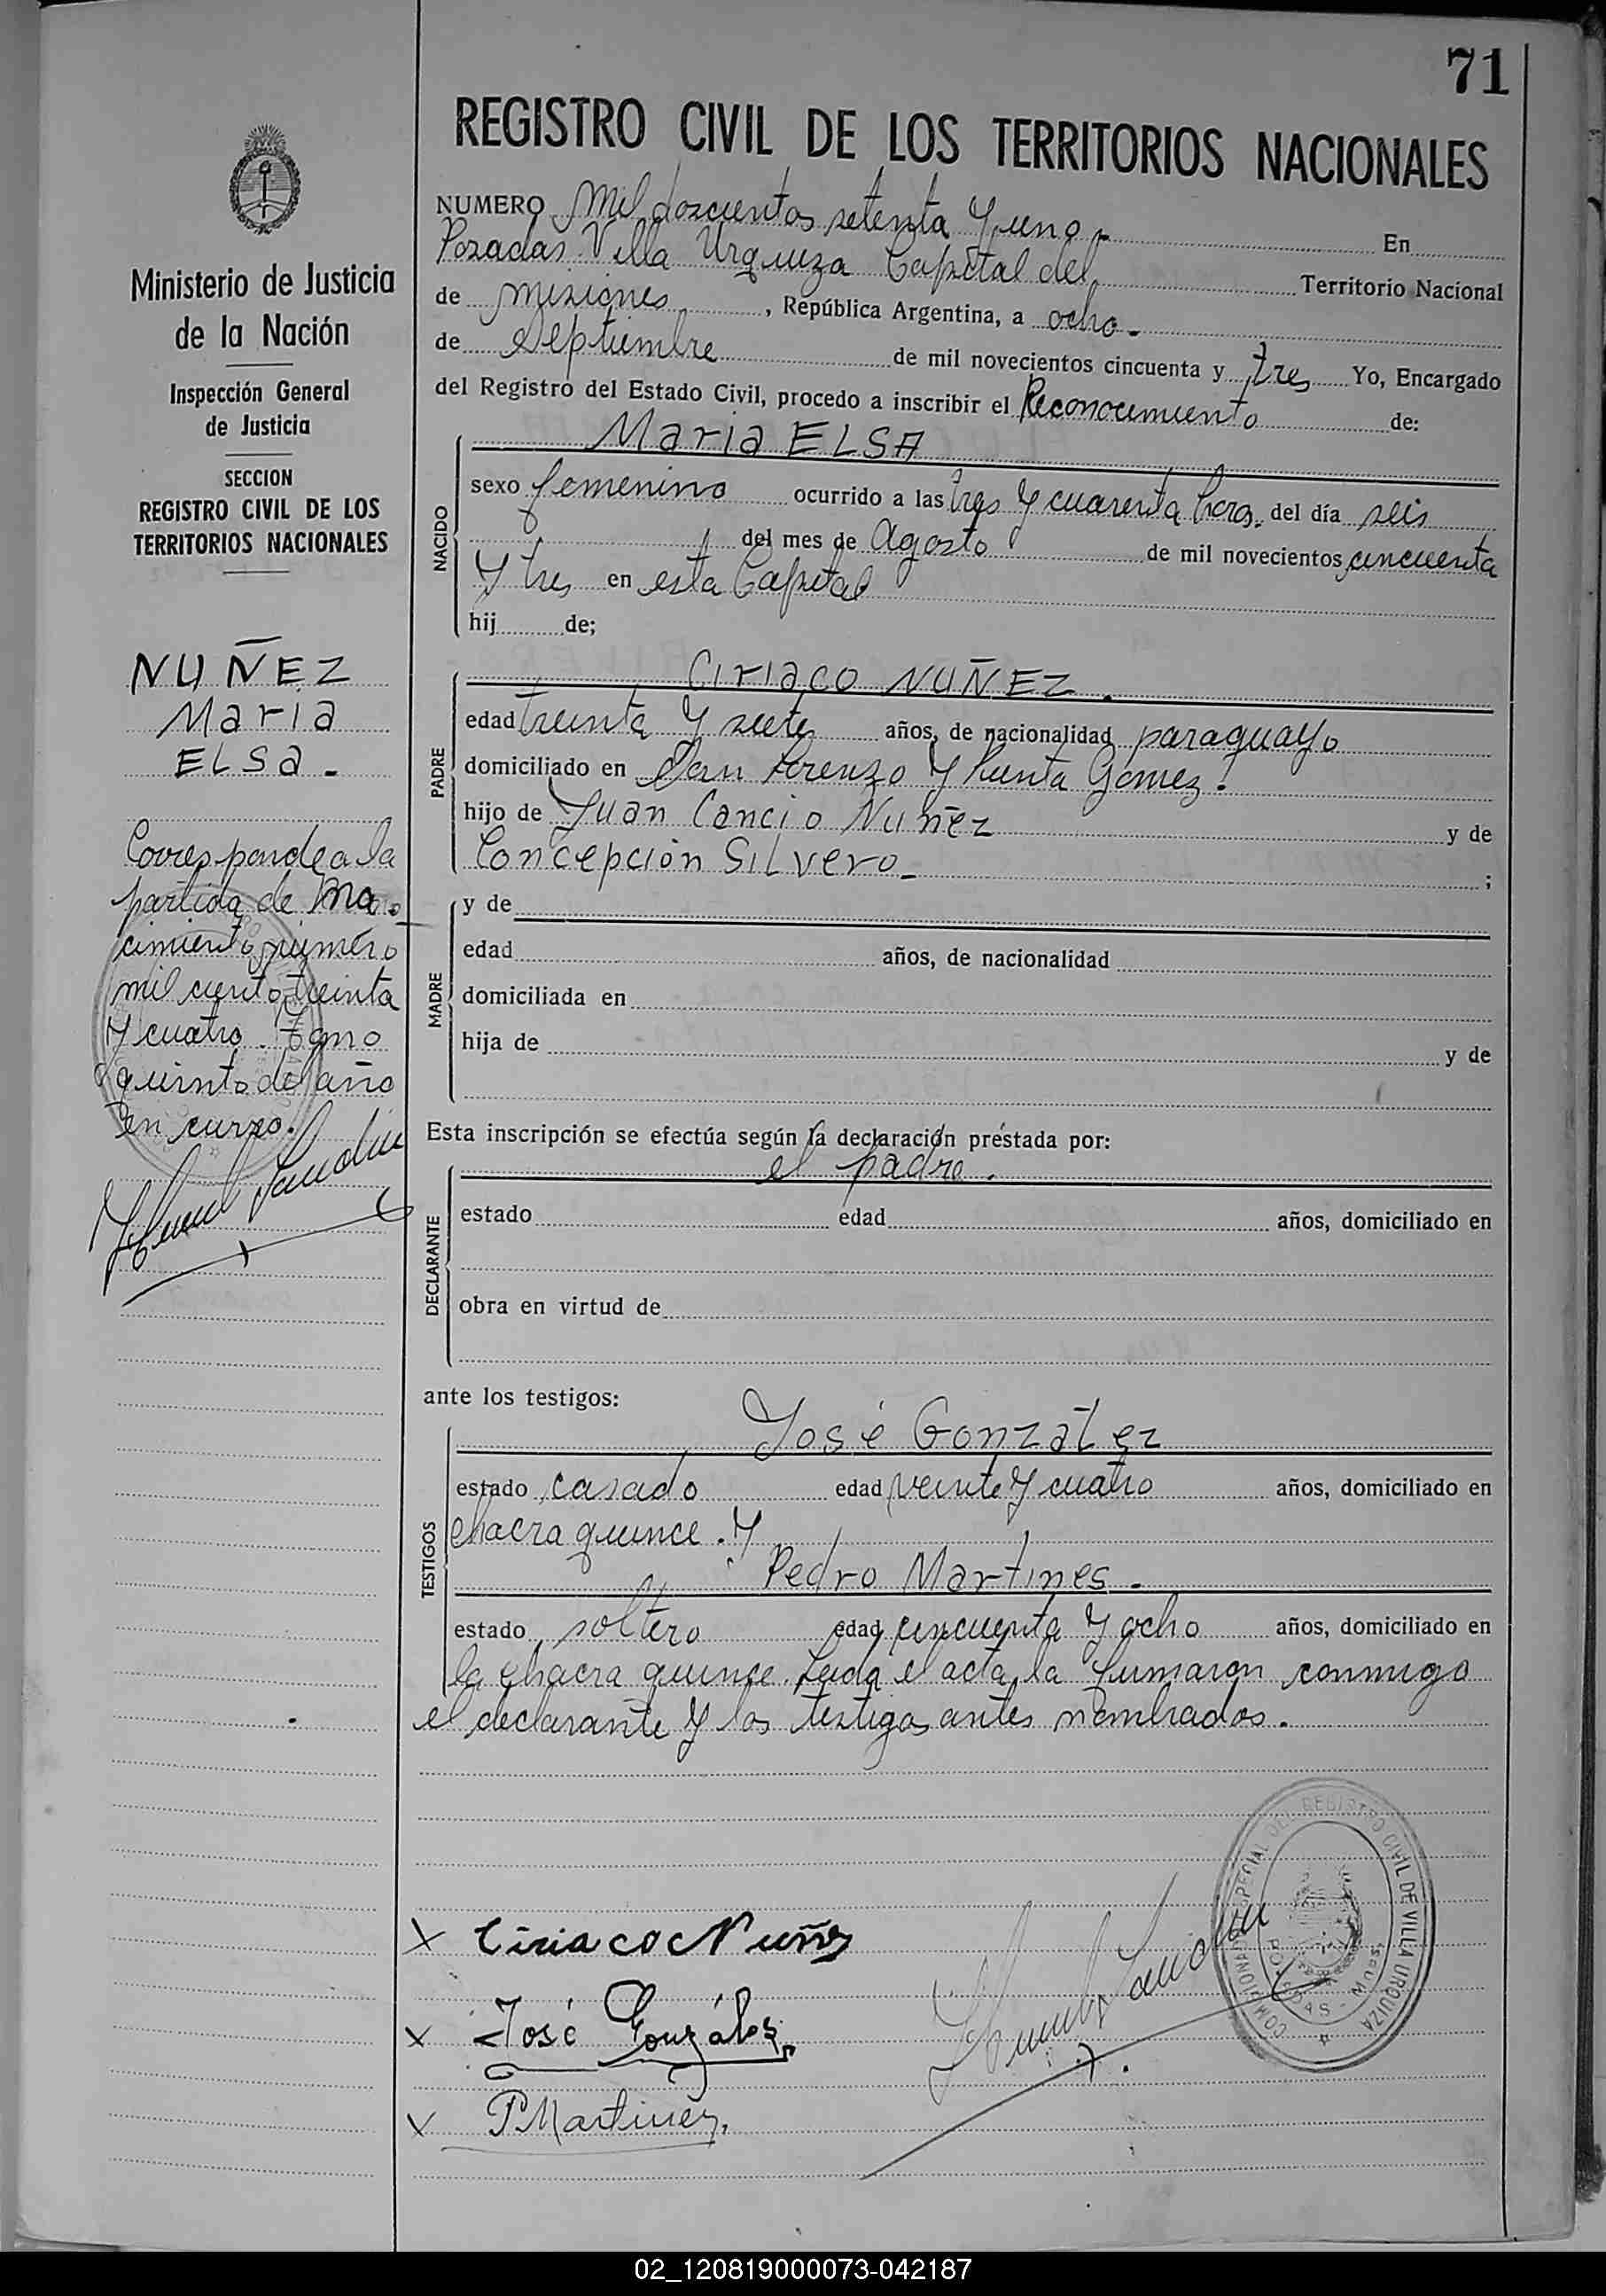 71
REGISTRO CIVIL DE LOS TERRITORIOS NACIONALES
Ministerio de Justicia
de la Nación
Inspección General
de Justicia
SECCION
REGISTRO CIVIL DE LOS
TERRITORIOS NACIONALES
NUÑEZ
Maria
ELSa -
Corresponde a la
partida de Na-
cimiento número
mil ciento treinta
y cuatro. Tomo
quinto del año
en curso.
NUMERO Mil doscientos setenta y uno - En
Posadas Villa Urquiza Capital del Territorio Nacional
de misiones, República Argentina, a ocho -
de Septiembre de mil novecientos cincuenta y tres Yo, Encargado
del Registro del Estado Civil, procedo a inscribir el Reconocimiento de:
NACIDO
Maria ELSA
sexo femenino ocurrido a las tres y cuarenta hora. del día seis
del mes de Agosto de mil novecientos cincuenta
y tres en esta Capital
hij de;
PADRE
Ciriaco NUÑEZ.
edad treinta y siete años, de nacionalidad paraguayo
domiciliado en San Lorenzo y Punta Gomez.
hijo de Juan Cancio Nuñez y de
Concepción Silvero - ;
MADRE
y de
edad años, de nacionalidad
domiciliada en
hija de y de
Esta inscripción se efectúa según la declaración prestada por:
DECLARANTE
el padre.
estado edad años, domiciliado en
obra en virtud de
ante los testigos:
TESTIGOS
José González
estado casado edad veinte y cuatro años, domiciliado en
chacra quince. y
Pedro Martines -
estado soltero edad cincuenta y ocho años, domiciliado en
la chacra quince. Leida el acta, la firmaron conmigo
el declarante y los testigos antes nombrados.
x Ciriaco Nuñez
x José González
x P Martinez.
REGISTRO CIVIL DE VILLA URQUIZA
POSADAS
02_120819000073-042187